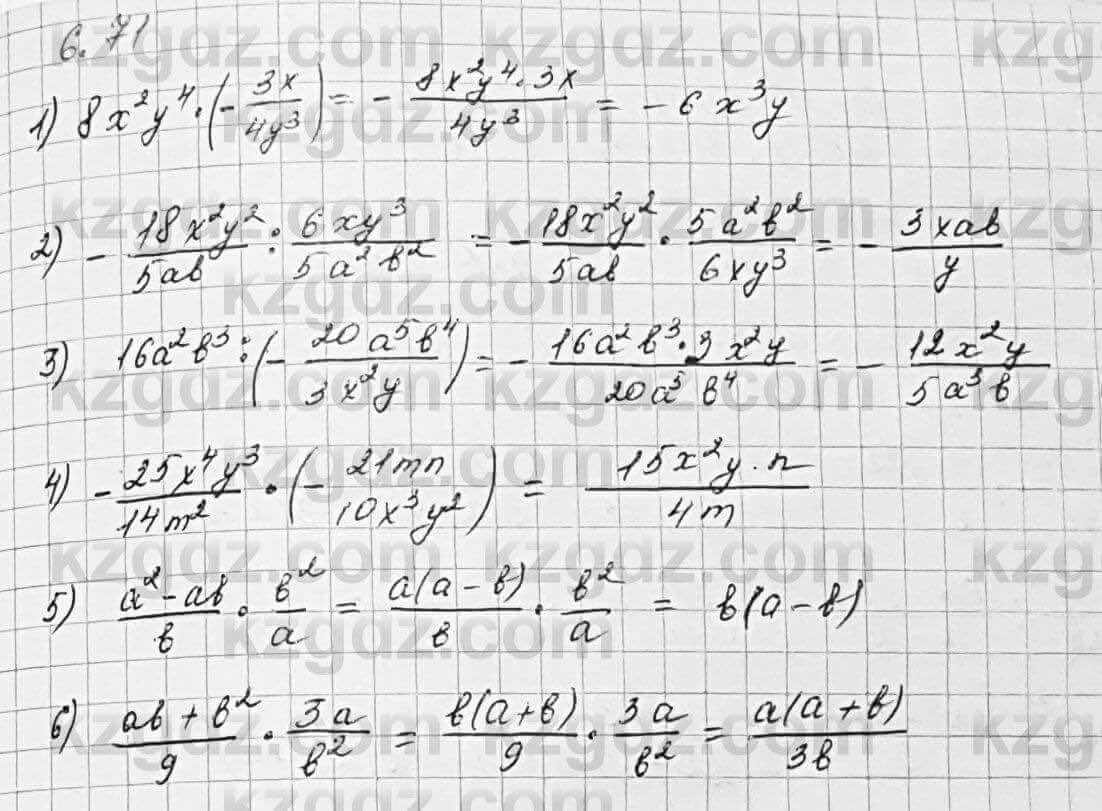 6.71
1) 8x²y⁴ · (- 3x/4y³) = - 8x²y⁴ · 3x/4y³ = - 6x³y
2) - 18x²y²/5ab : 6xy³/5a²b² = - 18x²y²/5ab · 5a²b²/6xy³ = - 3xab/y
3) 16a²b³ : (- 20a⁵b⁴/3x²y) = - 16a²b³ · 3x²y/20a⁵b⁴ = - 12x²y/5a³b
4) - 25x⁴y³/14m² · (- 21mn/10x³y²) = 15x²y · n/4m
5) a² - ab/b · b²/a = a(a - b)/b · b²/a = b(a - b)
6) ab + b²/9 · 3a/b² = b(a + b)/9 · 3a/b² = a(a + b)/3b
kzgdz.com